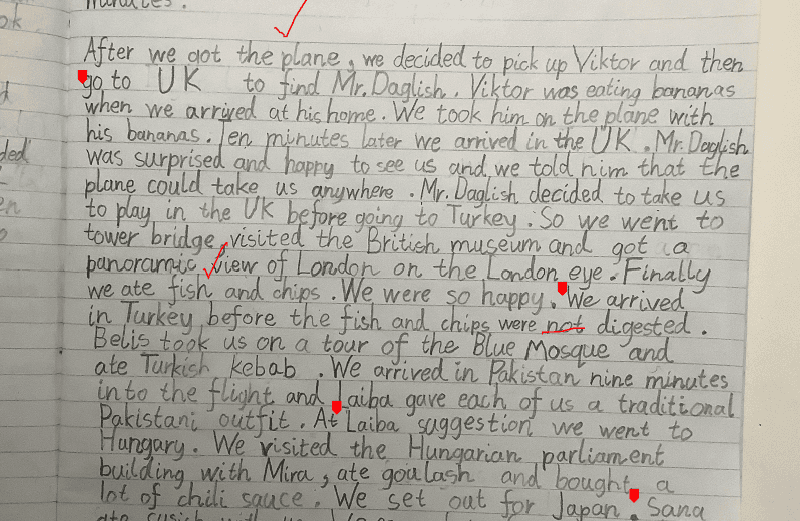 After we got the plane, we decided to pick up Viktor and then
go to UK to find Mr. Daglish. Viktor was eating bananas
when we arrived at his home. We took him on the plane with
his bananas. Ten minutes later we arrived in the UK. Mr. Daglish
was surprised and happy to see us and we told him that the
plane could take us anywhere. Mr. Daglish decided to take us
to play in the UK before going to Turkey. So we went to
tower bridge, visited the British museum and got a
panoramic view of London on the London eye. Finally
we ate fish and chips. We were so happy. We arrived
in Turkey before the fish and chips were not digested.
Belis took us on a tour of the Blue Mosque and
ate Turkish kebab. We arrived in Pakistan nine minutes
into the flight and Laiba gave each of us a traditional
Pakistani outfit. At Laiba suggestion we went to
Hungary. We visited the Hungarian parliament
building with Mira, ate goulash and bought a
lot of chili sauce. We set out for Japan. Sana